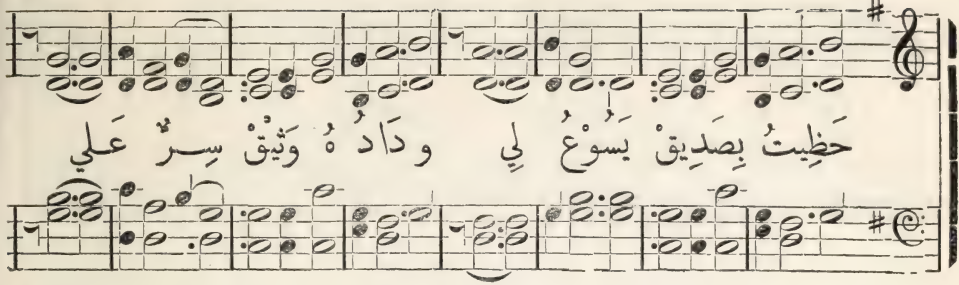 حَظِيتُ بِصَدِيقْ يَسُوْعُ لِي وِدَادُ هُ وَثِيْقْ سِرٌّ عَلي